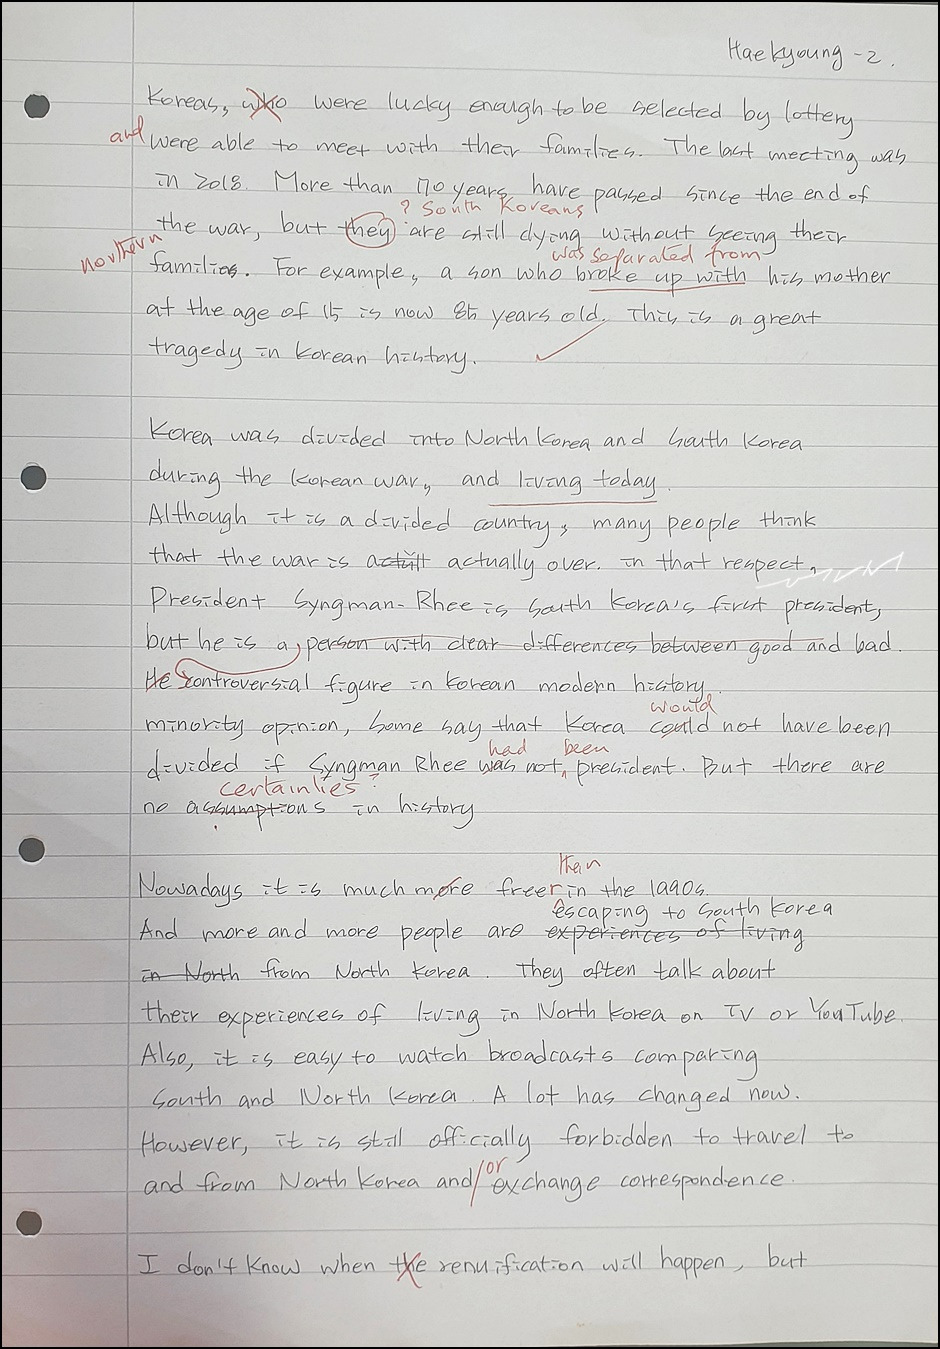 Haekyoung -2.
Koreas, who were lucky enough to be selected by lottery
and were able to meet with their families. The last meeting was
in 2018. More than 70 years have passed since the end of
? South Koreans
the war, but they are still dying without seeing their
was separated from
northern families. For example, a son who broke up with his mother
at the age of 15 is now 85 years old. This is a great
tragedy in Korean history.
Korea was divided into North Korea and South Korea
during the Korean war, and living today.
Although it is a divided country, many people think
that the war is actually over. in that respect,
President Syngman-Rhee is South Korea's first president,
but he is a person with clear differences between good and bad.
He controversial figure in Korean modern history.
would
minority opinion, some say that Korea could not have been
had been
divided if Syngman Rhee was not president. But there are
certainties?
no assumptions in history
than
Nowadays it is much more freer in the 1990s.
escaping to South Korea
And more and more people are experiences of living
in North from North Korea. They often talk about
their experiences of living in North Korea on TV or YouTube.
Also, it is easy to watch broadcasts comparing
South and North Korea. A lot has changed now.
However, it is still officially forbidden to travel to
and from North Korea and/or exchange correspondence.
I don't know when the renuification will happen, but